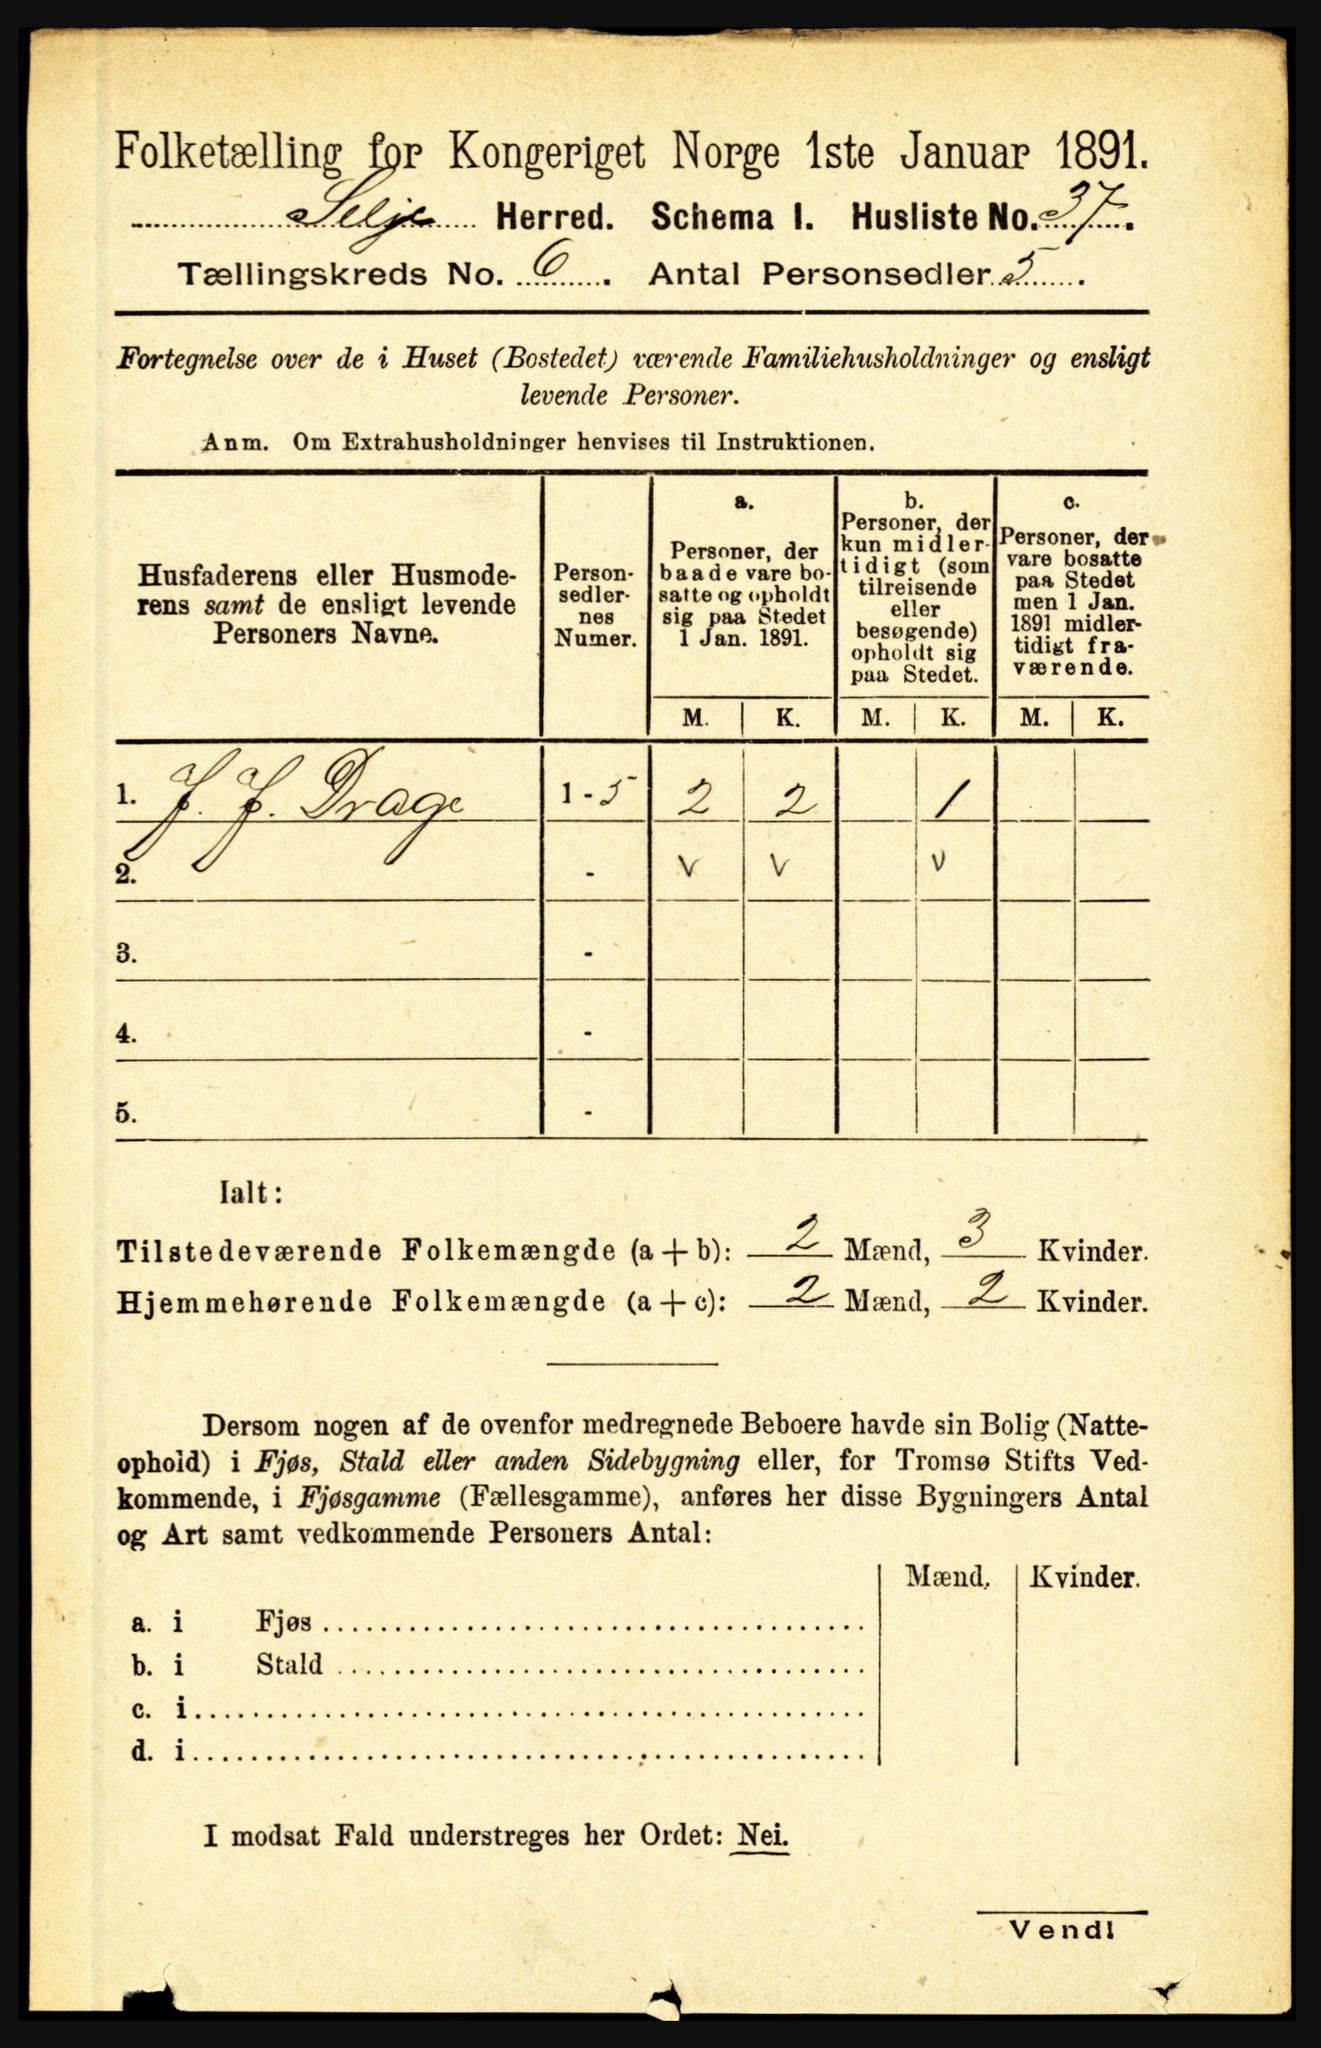 Folketælling for Kongeriget Norge 1ste Januar 1891.
Selje Herred. Schema I. Husliste No. 37.
Tællingskreds No. 6. Antal Personsedler 5.
Fortegnelse over de i Huset (Bostedet) værende Familiehusholdninger og ensligt
levende Personer.
Anm. Om Extrahusholdninger henvises til Instruktionen.
Husfaderens eller Husmode-
rens samt de ensligt levende
Personers Navne.
Person-
sedler-
nes
Numer.
a.
Personer, der
baade vare bo-
satte og opholdt
sig paa Stedet
1 Jan. 1891.
b.
Personer, der
kun midler-
tidigt (som
tilreisende
eller
besøgende)
opholdt sig
paa Stedet.
c.
Personer, der
vare bosatte
paa Stedet
men 1 Jan.
1891 midler-
tidigt fra-
værende.
M. K. M. K. M. K.
1. J. J. Drage 1-5 2 2 1
2. - v v v
3. -
4. -
5. -
Ialt:
Tilstedeværende Folkemængde (a + b): 2 Mænd, 3 Kvinder.
Hjemmehørende Folkemængde (a + c): 2 Mænd, 2 Kvinder.
Dersom nogen af de ovenfor medregnede Beboere havde sin Bolig (Natte-
ophold) i Fjøs, Stald eller anden Sidebygning eller, for Tromsø Stifts Ved-
kommende, i Fjøsgamme (Fællesgamme), anføres her disse Bygningers Antal
og Art samt vedkommende Personers Antal:
Mænd. Kvinder.
a. i Fjøs
b. i Stald
c. i
d. i
I modsat Fald understreges her Ordet: Nei.
Vend!